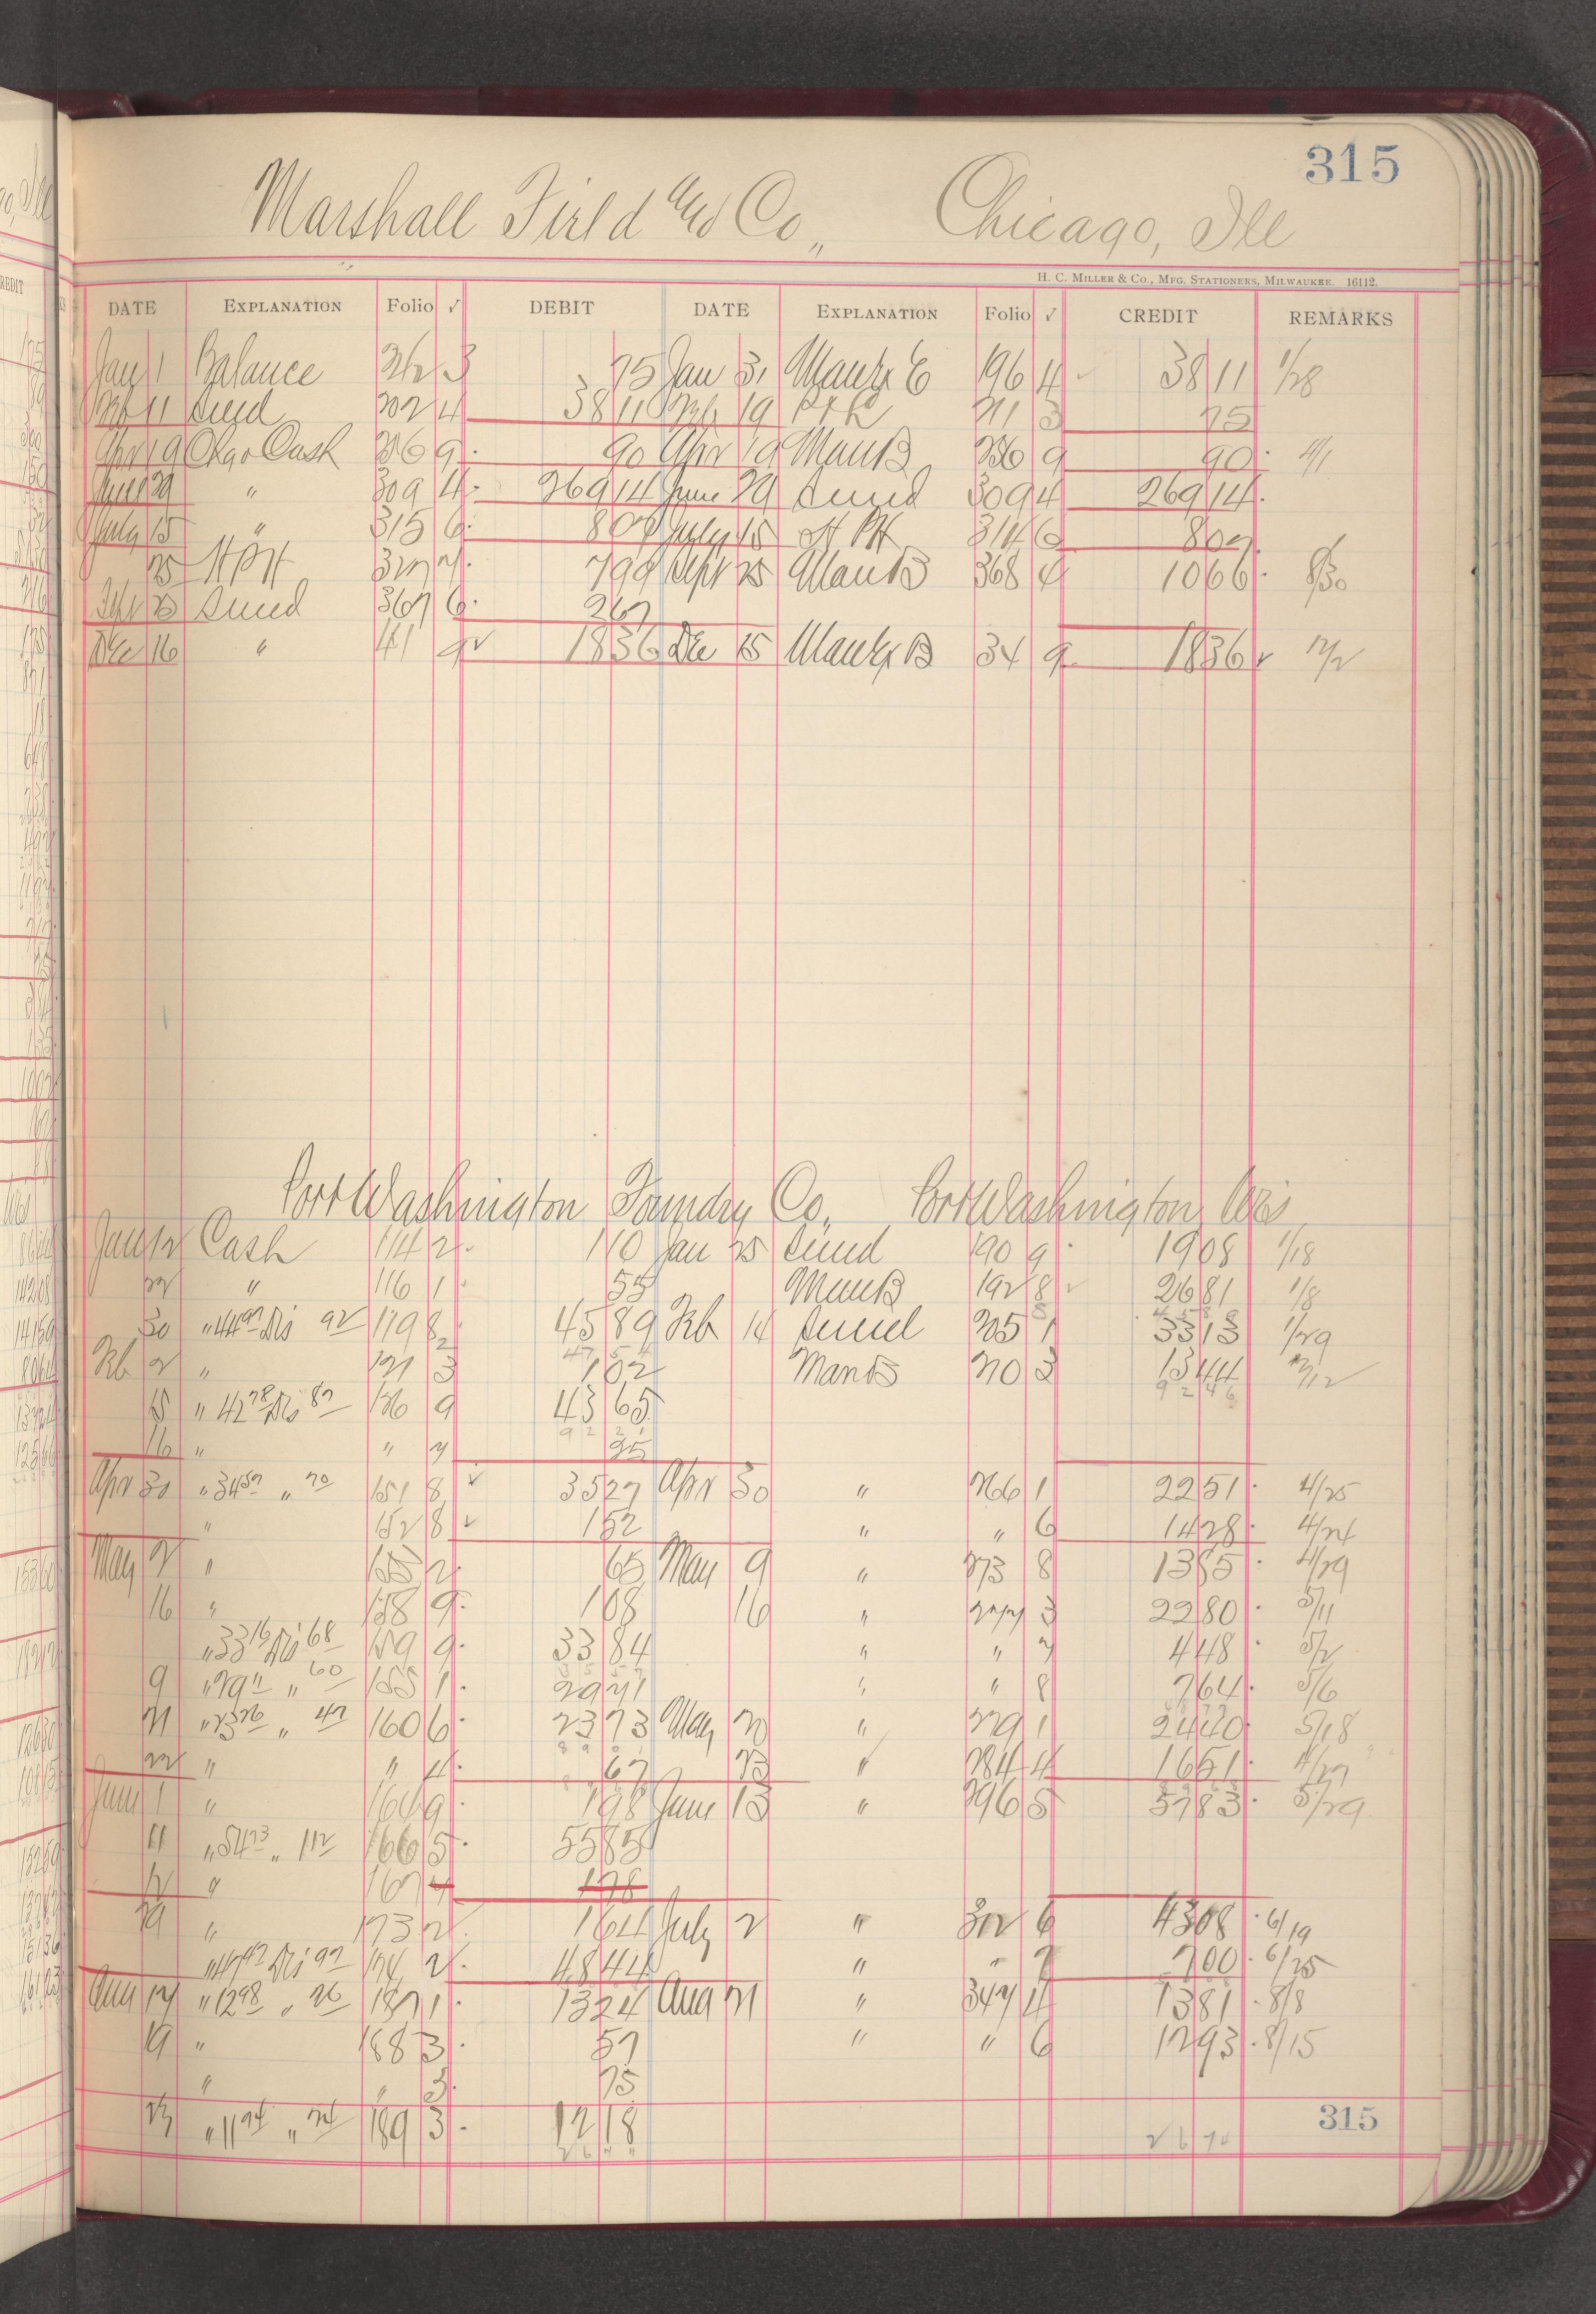 315
Marshall Field and Co., Chicago, Ill
H. C. Miller & Co., Mfg. Stationers, Milwaukee. 16112.
DATE EXPLANATION Folio ✓ DEBIT DATE EXPLANATION Folio ✓ CREDIT REMARKS
Jan 1 Balance 3 75 Jan 31 196 4 38 11 1/28
Feb 11 Sund 202 4 38 11 Feb 19 211 3 75
Apr 19 Chgo Cash 9 90 Apr 19 ManB 9 90 4/1
June 29 " 309 4 269 14 June 29 Sund 309 4 269 14
July 15 " 315 6 8 07 July 15 314 6 8 07
25 7 99 Sept 25 ManB 368 4 10 66 8/30
Sept 25 Sund 367 6 2 67
Dec 16 " 41 9 ✓ 18 36 Dec 15 34 9 18 36 ✓ 12/2
Port Washington Foundry Co. Port Washington Wis
Jan 12 Cash 114 2 1 10 Jan 25 Sund 190 9 19 08 1/18
22 " 116 1 55 ManB 192 8 26 81 1/8
30 " 44 97 Dis 92 119 8 45 89 Feb 14 Sund 205 1 33 13 1/29
Feb 2 " 121 3 1 02 ManB 3 13 44 2/12
15 " 42 78 Dis 87 126 9 43 65
16 " " 7 35
Apr 30 " 34 57 " 70 151 8 ✓ 35 27 Apr 30 " 266 1 22 51 4/25
" 152 8 ✓ 1 52 " " 6 14 28 4/24
May 2 " 2 65 May 9 " 273 8 13 85 4/29
16 " 158 9 1 68 16 " 277 3 22 80 5/11
" 33 16 Dis 68 159 9 33 84 " " 7 4 48 5/2
9 " 29 11 " 60 155 1 29 71 " " 8 7 64 5/6
21 " 23 26 " 47 160 6 23 73 May 20 " 279 1 24 40 5/18
22 " " 4 67 23 " 284 4 16 51 4/27
June 1 " 9 1 98 June 13 " 296 5 57 83 5/29
11 " 54 73 " 1 12 166 5 55 85
12 " 167 4 1 78
29 " 173 2 1 64 July 2 " 302 6 43 08 6/19
" 47 47 Dis 97 174 2 48 44 " " 7 7 00 6/25
Aug 17 " 12 98 " 26 187 1 13 24 Aug 21 " 347 4 13 81 8/8
19 " 188 3 57 " " 6 12 93 8/15
" " 3 75
23 " 11 94 " 24 189 3 12 18
315